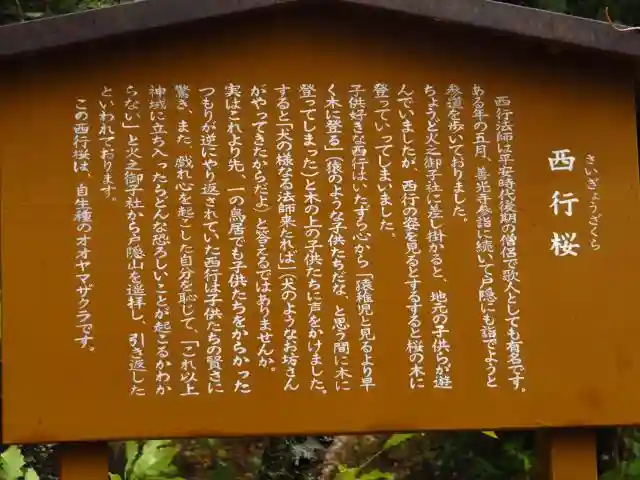 さいぎょうざくら
西行桜
西行法師は平安時代後期の僧侶で歌人としても有名です。
ある年の五月、善光寺参詣に続いて戸隠にも詣でようと
参道を歩いておりました。
ちょうど火之御子社に差し掛かると、地元の子供らが遊
んでいましたが、西行の姿を見るとするすると桜の木に
登っていってしまいました。
子供好きな西行はいたずら心から「猿稚児と見るより早
く木に登る」（猿のような子供たちだな、と思う間に木に
登ってしまった）と木の上の子供たちに声をかけました。
すると「犬の様なる法師来たれば」（犬のようなお坊さん
がやってきたからだよ）と答えるではありませんか。
実はこれより先、一の鳥居でも子供たちをからかった
つもりが逆にやり返されていた西行は子供たちの賢さに
驚き、また、戯れ心を起こした自分を恥じて、「これ以上
神域に立ち入ったらどんな恐ろしいことが起こるかわか
らない」と火之御子社から戸隠山を遥拝し、引き返した
といわれております。
この西行桜は、自生種のオオヤマザクラです。